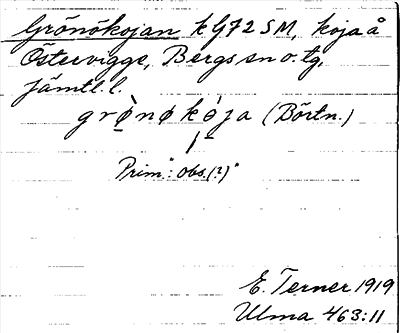 Grönökojan kG72SM, koja å
Östervigge, Bergs sn o. tg,
Jämtl. l.
grø̀nøkója (Börtn.)
Prim.: "obs.(?)"
E. Terner 1919
Ulma 463:11